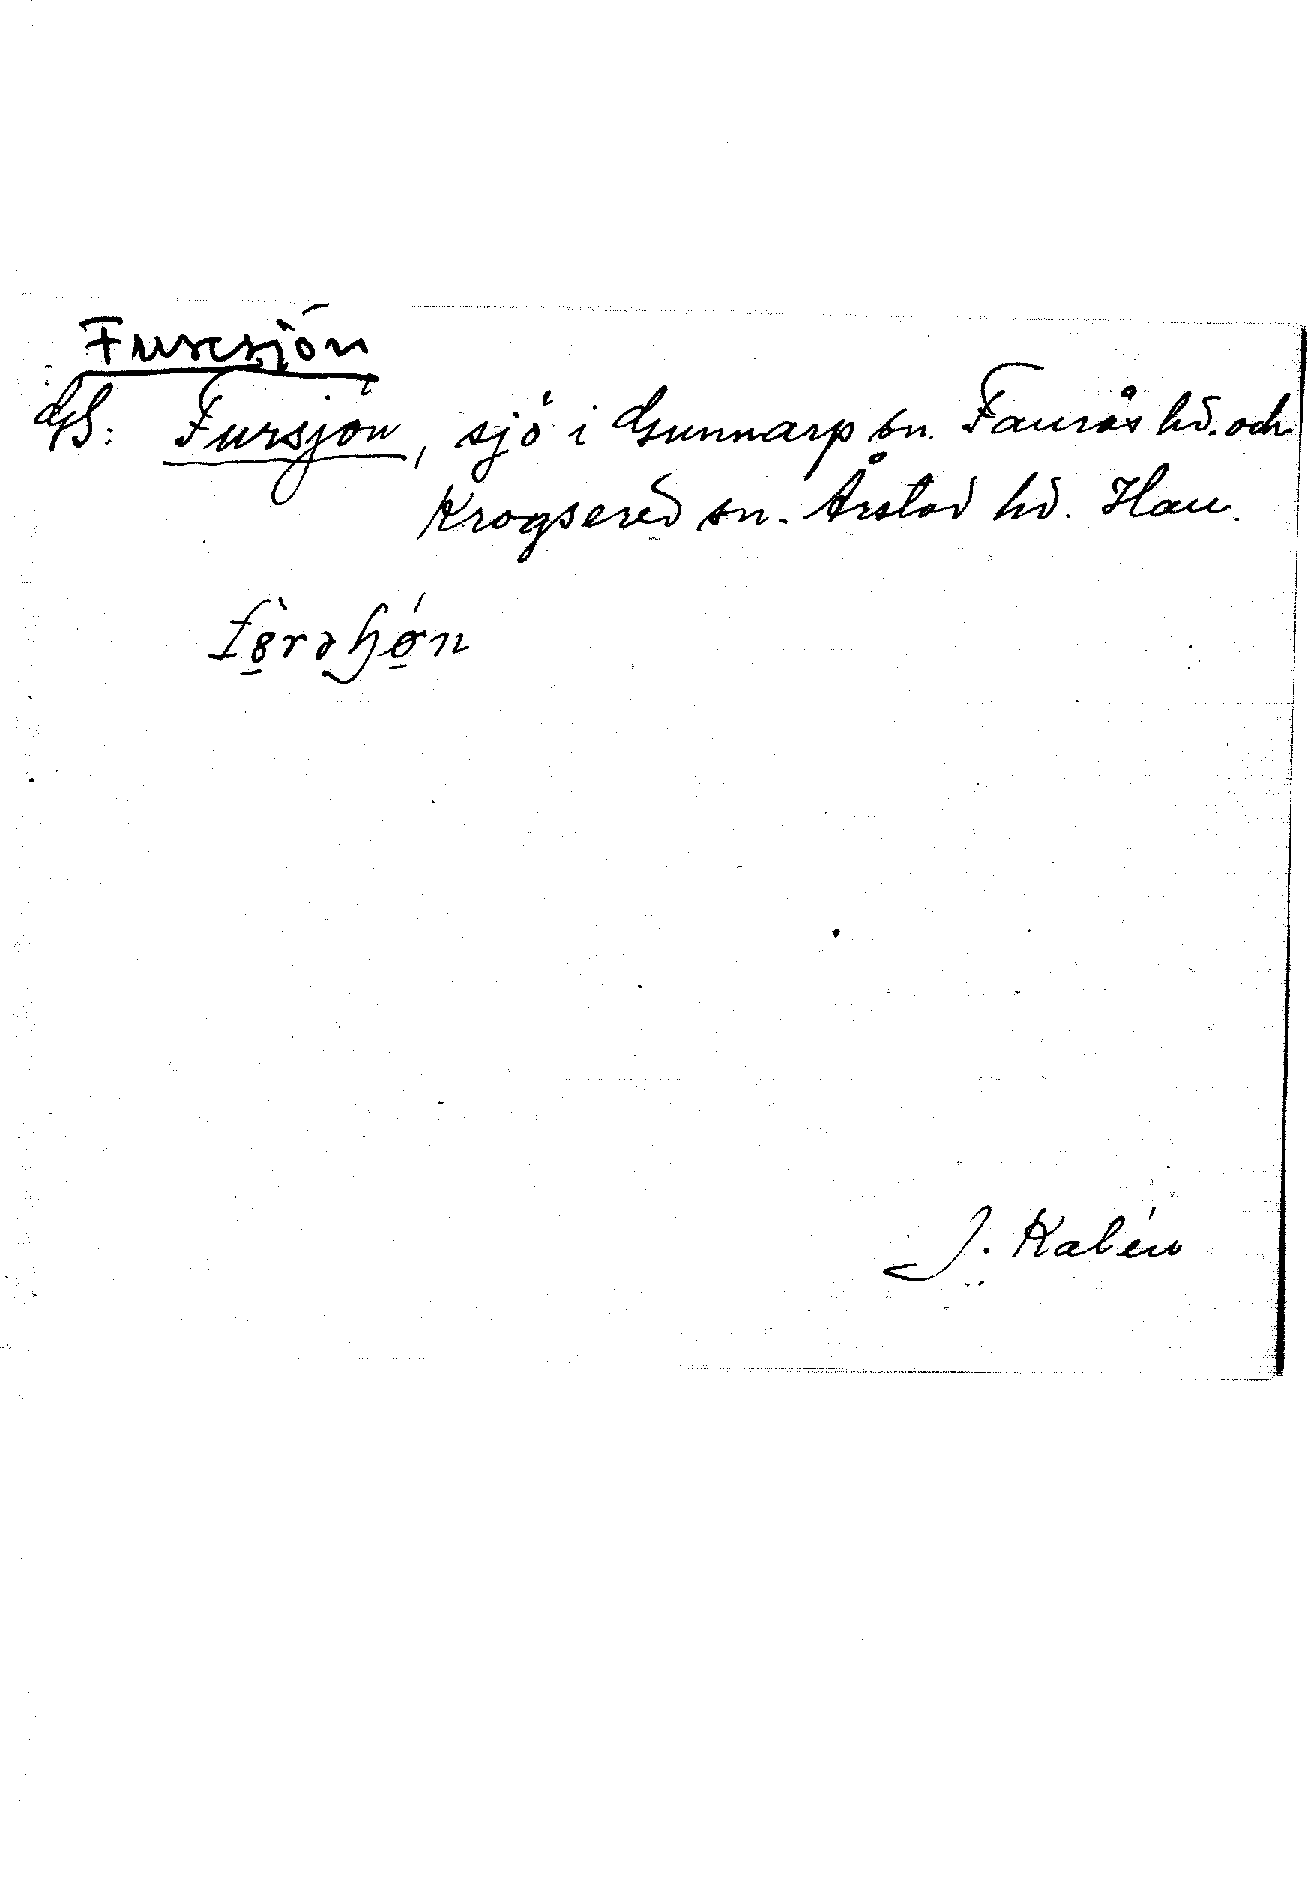 Furesjön
GS: Fursjön, sjö i Gunnarp sn. Faurås hd. och
Krogsered sn. Årstad hd. Hall.
J. Kalén